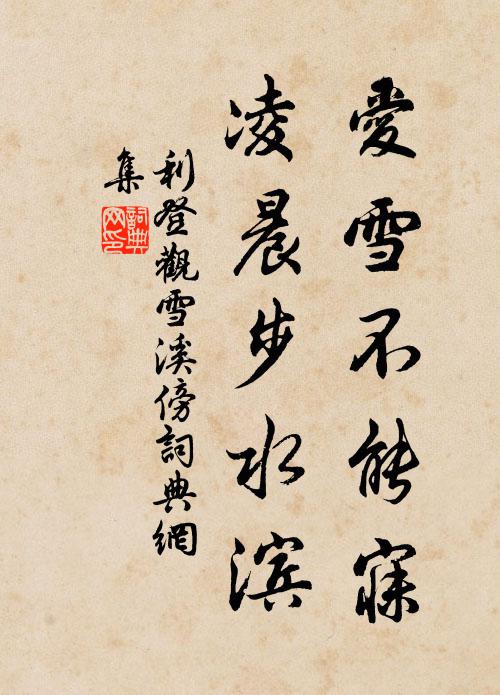 愛雪不能寐
凌晨步水滨
利登觀雪溪傍詞典網
集
詞典
网印